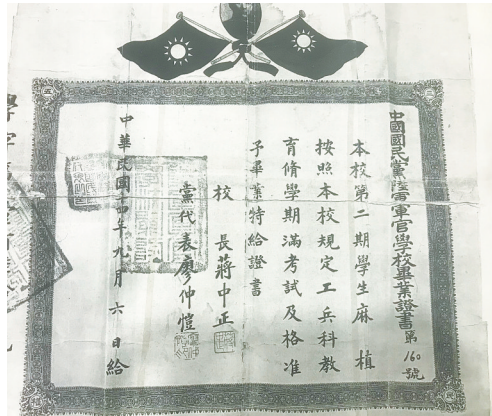 中國國民黨陸軍軍官學校畢業證書第160號
本校第二期學生麻植
按照本校規定工兵科教
育脩學期滿考試及格准
予畢業特給證書
校長蔣中正
黨代表廖仲愷
中華民國十四年九月六日給